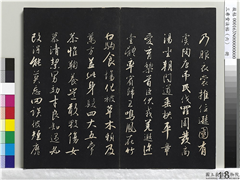 乃服衣裳推位讓國有
虞陶唐弔民伐罪周發商
湯坐朝問道垂拱平章
愛育黎首臣伏戎羌遐
邇壹體率賓歸王鳴鳳在
白駒食場化被草木賴及
萬方蓋此身髮四大五常
恭惟鞠養豈敢毀傷女
慕貞絜男效才良知過必
改得能莫忘罔談彼短靡
18